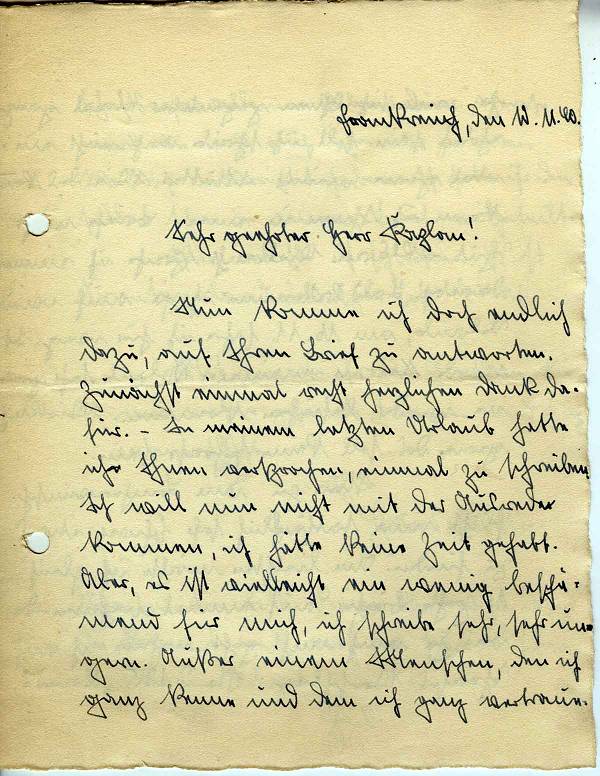 Frankreich, den 12.11.40.
Sehr geehrter Herr Kaplan!
Nun komme ich doch endlich
dazu, auf Ihren Brief zu antworten.
Zunächst einmal recht herzlichen Dank da-
für. – In meinem letzten Urlaub hatte
ich Ihnen versprochen, einmal zu schreiben.
Ich will nun nicht mit der Ausrede
kommen, ich hätte keine Zeit gehabt.
Aber, es ist vielleicht ein wenig beschä-
mend für mich, ich schreibe sehr, sehr un-
gern. Außer einem Menschen, den ich
ganz kenne und dem ich ganz vertraue.